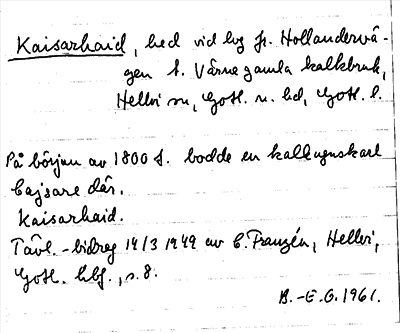 Kaisarhaid, hed vid lvg fr. Hollandervä-
gen t. Värne gamla kalkbruk,
Hellvi sn, Gotl. n. hd, Gotl. l.
På början av 1800 t. bodde en kalkugnskarl
Cajsare där.
Kaisarhaid.
Tävl.-bidrag 14/3 1949 av C. Franzén, Hellvi,
Gotl. hlf., s. 8.
B.-E.G. 1961.